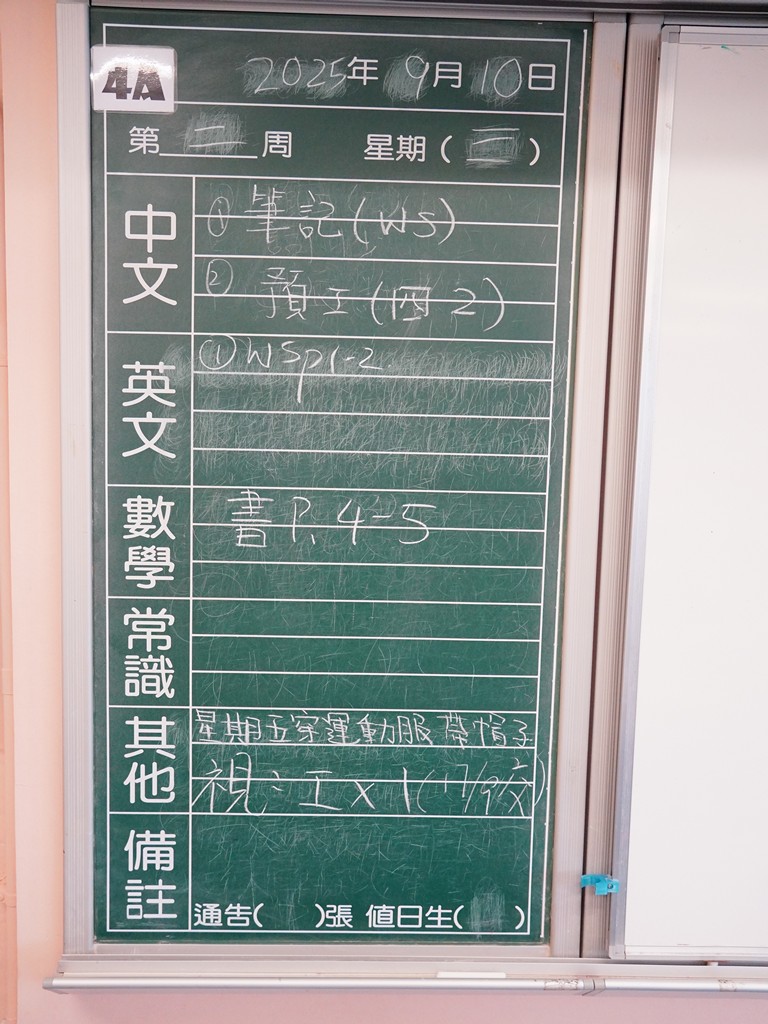 4A
2025年9月10日
第二周 星期(三)
中文
① 筆記(WS)
② 預工(四2)
英文
① WS p1-2
數學
書P.4-5
常識
其他
星期五穿運動服 帶帽子
視:工x1(17/9交)
備註
通告( )張 值日生( )